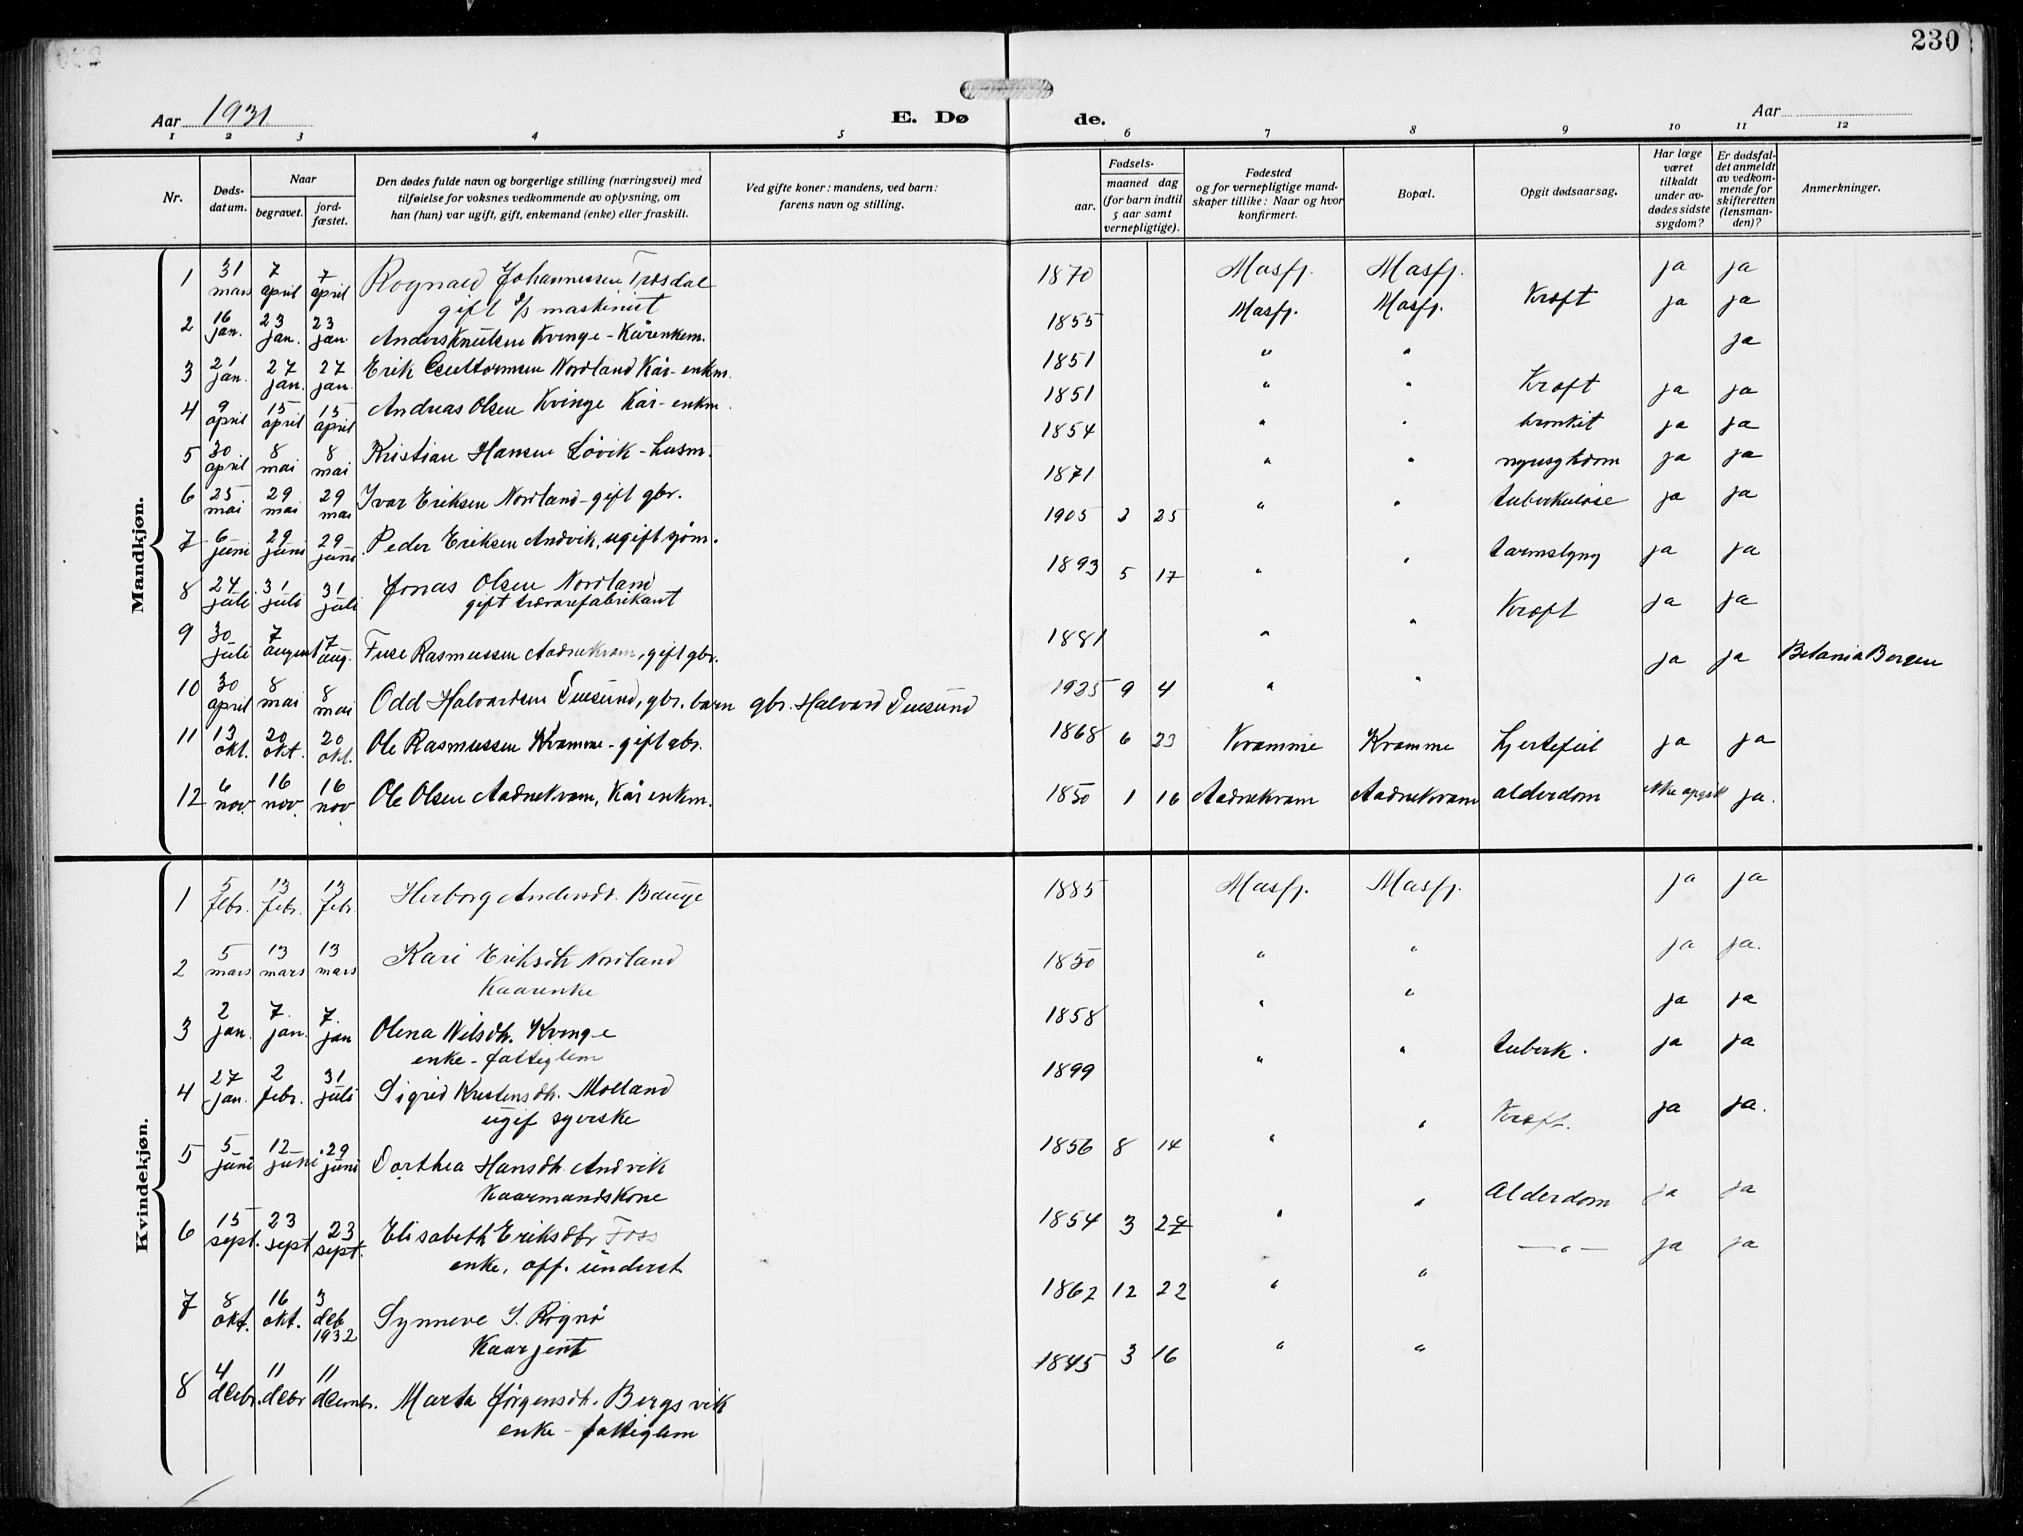 230
Aar 1931
E. Dø de.
Aar
1 2 3 4 5 6 7 8 9 10 11 12
Nr.
Døds-
datum.
Naar
begravet.
jord-
fæstet.
Den dødes fulde navn og borgerlige stilling (næringsvei) med
tilføielse for voksnes vedkommende av oplysning, om
han (hun) var ugift, gift, enkemand (enke) eller fraskilt.
Ved gifte koner: mandens, ved barn:
farens navn og stilling.
Fødsels-
aar.
maaned dag
(for barn indtil
5 aar samt
vernepligtige).
Fødested
og for vernepligtige mand-
skaper tillike: Naar og hvor
konfirmert.
Bopæl.
Opgit dødsaarsag.
Har læge
været
tilkaldt
under av-
dødes sidste
sygdom?
Er dødsfal-
det anmeldt
av vedkom-
mende for
skifteretten
(lensman-
den)?
Anmerkninger.
Mandkjøn.
1 31 mars 7 april 7 april Rognald Johannessen Trosdal 1870 Masfj. Masfj. ja ja
gift d/s maskinist
2 16 jan. 23 jan. 23 jan. Anders Knutsen Kvinge - Kårenkem. 1855 Masfj. Masfj. Kræft ja ja
3 21 jan. 27 jan. 27 jan. Erik Nordland Kår-enkm. 1851 " " ja
4 9 april 15 april 15 april Andreas Olsen Kvinge Kår-enkm. 1851 " " Kræft ja ja
5 30 april 8 mai 8 mai Kristian Hansen Løvik - husm. 1854 " " bronkit ja ja
6 25 mai 29 mai 29 mai Ivar Eriksen Nordland - gift gbr. 1871 " " nyresykdom ja ja
7 6 juni 29 juni 29 juni Peder Eriksen Andvik, ugift sjøm. 1905 3 25 " " tuberkuløse ja ja
8 27 juli 31 juli 31 juli Jonas Olsen Nordland 1893 5 17 " " tarmslyng ja ja
gift trævarefabrikant
9 30 juli 7 august 17 aug. Rasmussen Aadnekvam, gift gbr. 1881 " " Kræft ja ja
10 30 april 8 mai 8 mai Odd Halvardsen Duesund, gbr. barn gbr. Halvard Duesund 1925 9 4 " " ja ja Betania Bergen
11 13 okt. 20 okt. 20 okt. Ole Rasmussen Kvamme - gift gbr. 1868 6 23 Kvamme Kvamme hjertefeil ja ja
12 6 nov. 16 nov. 16 nov. Ole Olsen Aadnekvam, Kår enkm. 1850 1 16 Aadnekvam Aadnekvam alderdom ikke opgit ja.
Kvindekjøn.
1 5 febr. 13 febr. 13 febr. Herborg Andersdt. Bauge 1885 Masfj. Masfj. ja ja
2 5 mars 13 mars 13 mars Kari Eriksdt. Nordland 1850 " " ja ja.
Kaarenke
3 2 jan. 7. jan. 7. jan Olena Nilsdt. Kvinge 1858 " " ja ja
enke - fattiglem
4 27 jan. 2 febr. 31 juli Sigrid Kristensdt. Molland 1899 " " tuberk. ja ja
ugif syerske
5 5 juni 12 juni 29 juni Dorthea Hansdt. Andvik 1856 8 14 " " Kræft. ja ja.
Kaarmandskone
6 15 sept. 23 sept 23 sept. Elisabeth Eriksdtr Foss 1854 3 27 " " Alderdom ja ja
enke, off. underst.
7 8 okt. 16 okt. 3 deb 1932 Synneve I. Rognø 1862 12 22 " " —"— ja ja
Kaarjent
8 4 decbr. 11 decbr 11 decmbr. Marta Jørgensdt. Bergsvik 1845 3 16 " "
enke - fattiglem